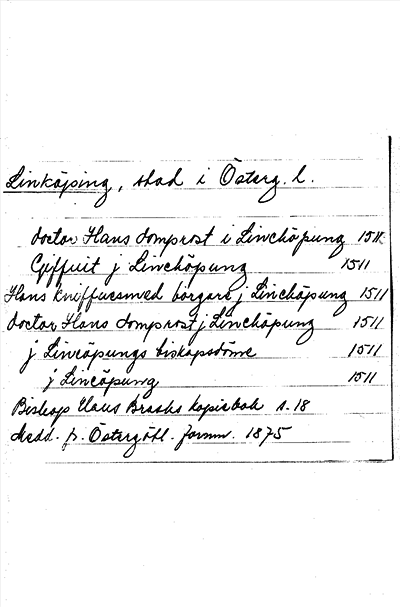 Linköping, stad i Österg. l.
doctor Hans domprost i Linchöpung 1511
Giffuit j Linchöpung 1511
Hans kniffuesmed borgare j Linchöpung 1511
doctor Hans domprost j Linchöpung 1511
j Lincöpungs biskopsdöme 1511
j Lincöpung 1511
Biskop Hans Brasks kopiebok s. 18
Medd. fr. Östergötl. fornm. 1875